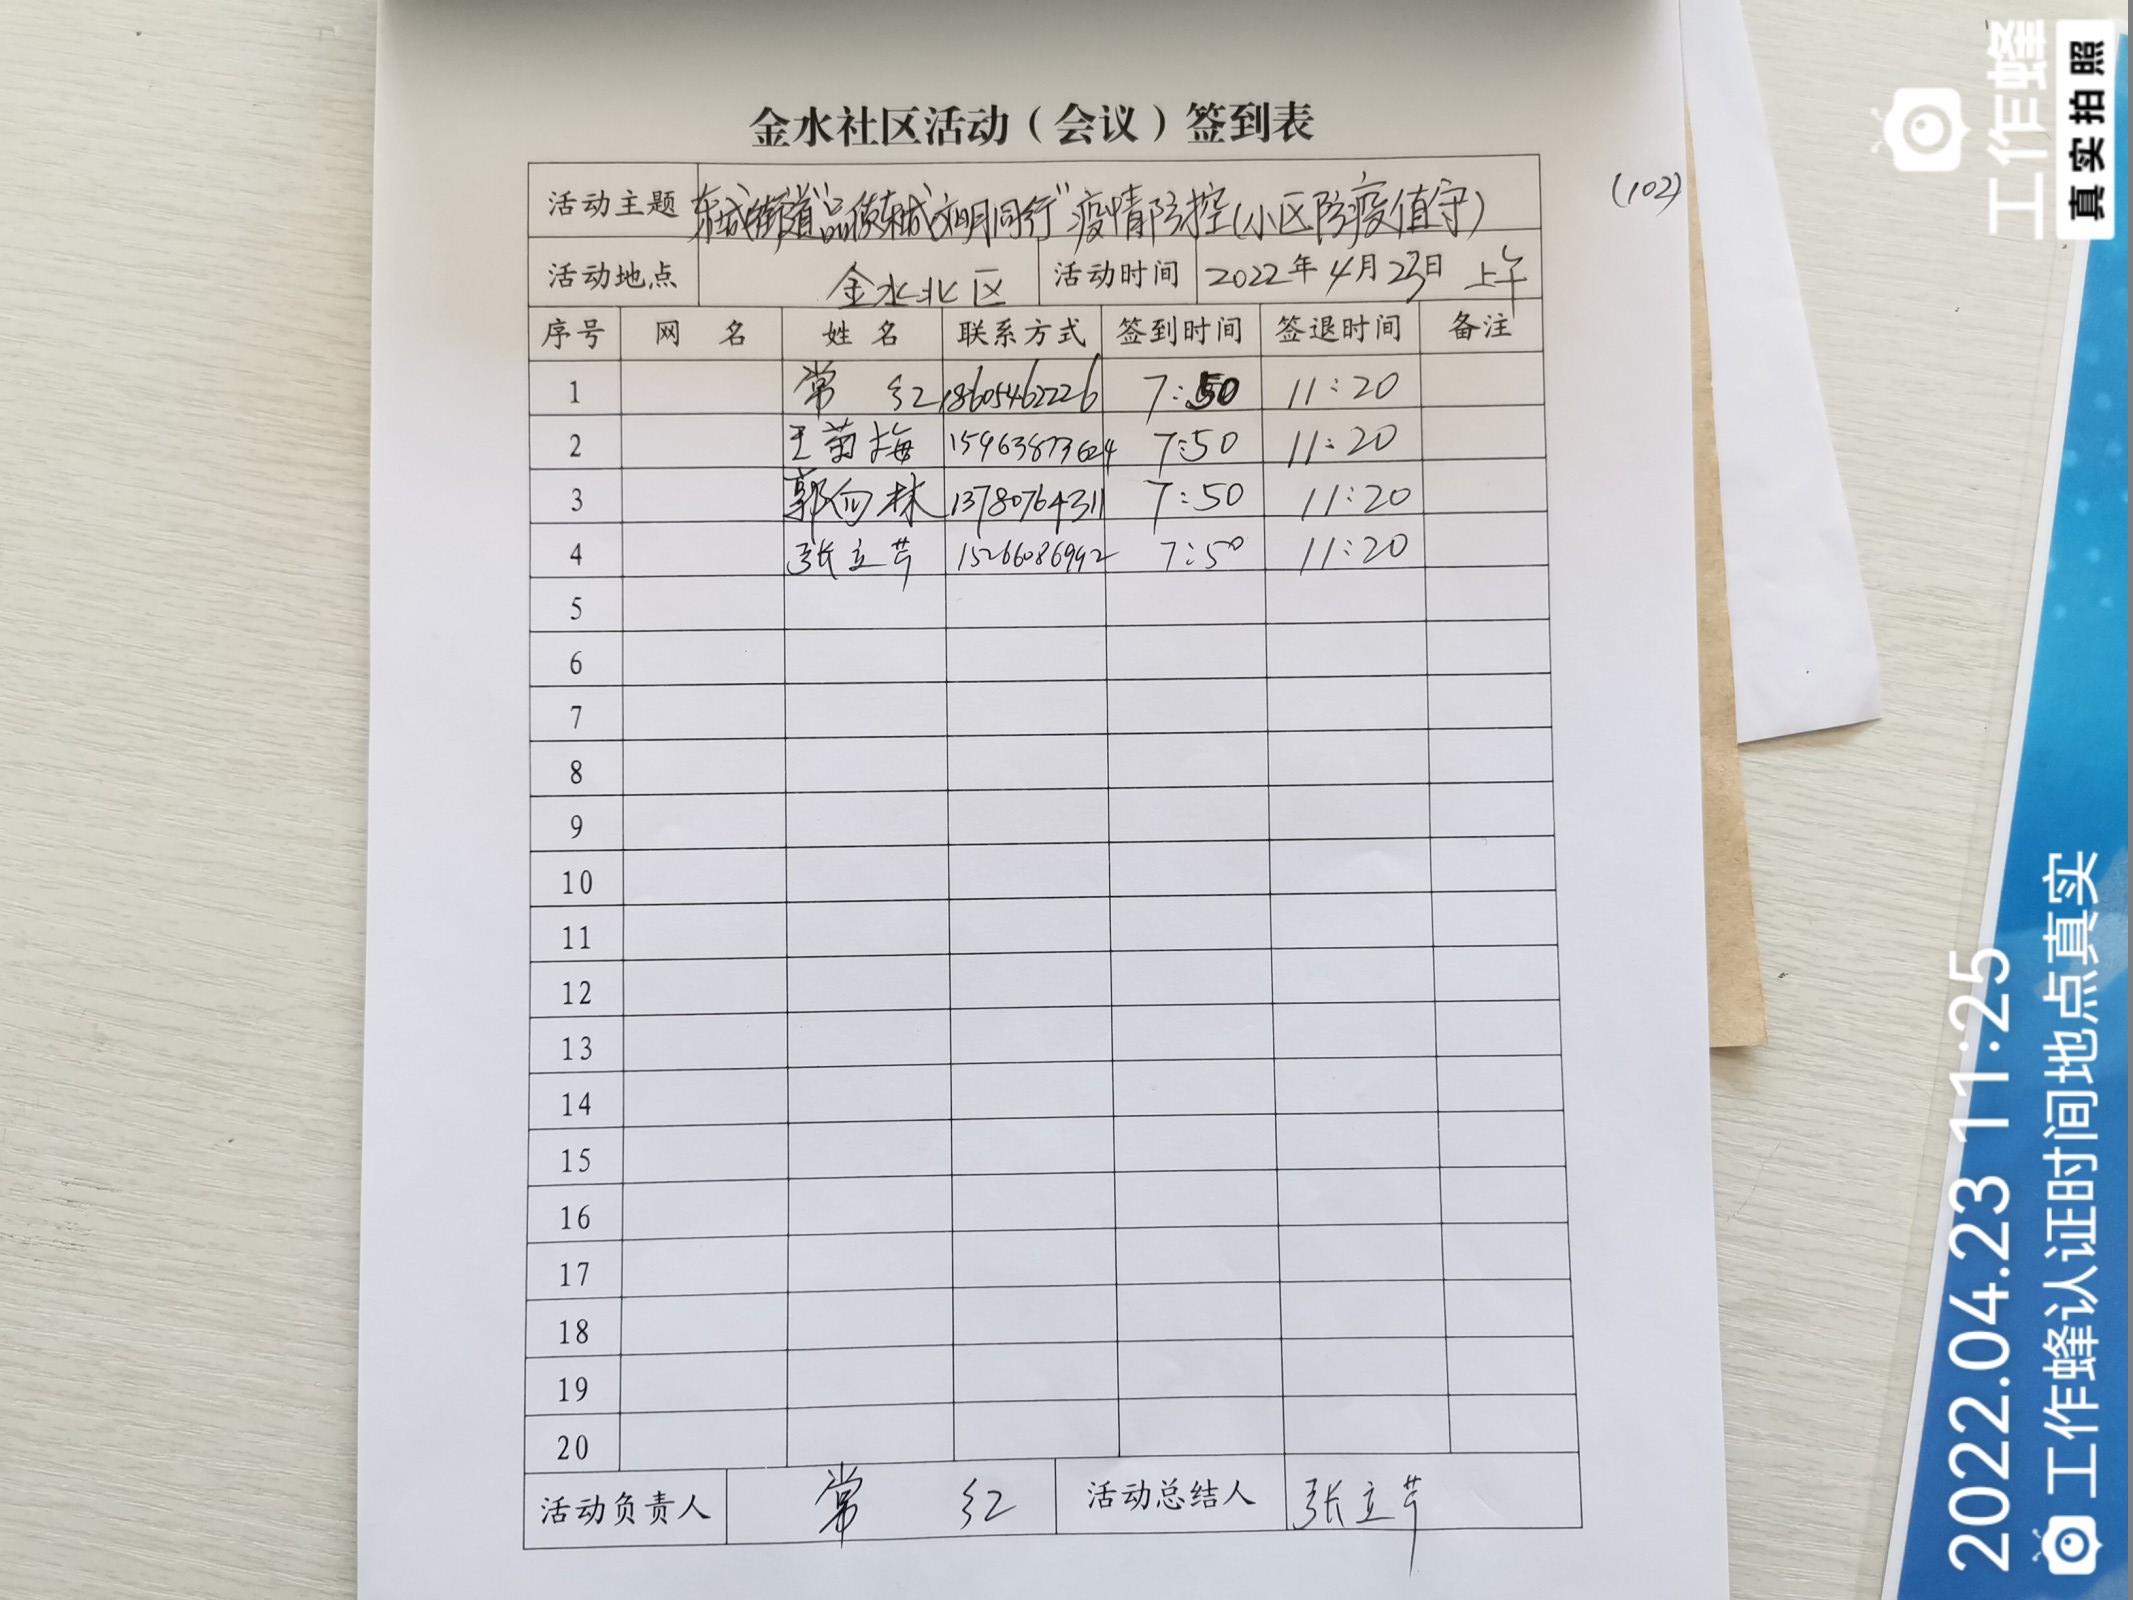 金水社区活动（会议）签到表
(102)
活动主题 东城街道“品质东城 文明同行”疫情防控(小区防疫值守)
活动地点 金水北区 活动时间 2022年4月23日 上午
序号 网 名 姓 名 联系方式 签到时间 签退时间 备注
1 常 红 18605462226 7:50 11:20
2 王菊梅 15963873624 7:50 11:20
3 郭向林 13780764311 7:50 11:20
4 张立芹 15266086992 7:50 11:20
5
6
7
8
9
10
11
12
13
14
15
16
17
18
19
20
活动负责人 常 红 活动总结人 张立芹
工作蜂
真实拍照
2022.04.23 11:25
工作蜂认证时间地点真实